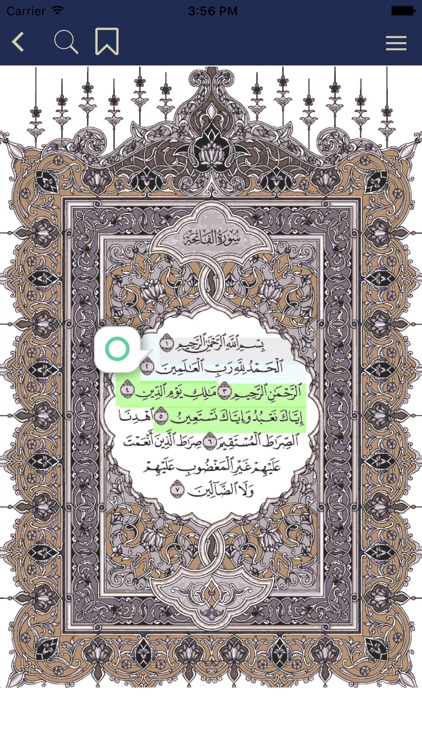 Carrier 3:56 PM
سُورَةُ الْفَاتِحَةِ
بِسْمِ اللَّهِ الرَّحْمَٰنِ الرَّحِيمِ ١
الْحَمْدُ لِلَّهِ رَبِّ الْعَالَمِينَ ٢
الرَّحْمَٰنِ الرَّحِيمِ ٣ مَالِكِ يَوْمِ الدِّينِ ٤
إِيَّاكَ نَعْبُدُ وَإِيَّاكَ نَسْتَعِينُ ٥ اهْدِنَا
الصِّرَاطَ الْمُسْتَقِيمَ ٦ صِرَاطَ الَّذِينَ أَنْعَمْتَ
عَلَيْهِمْ غَيْرِ الْمَغْضُوبِ عَلَيْهِمْ
وَلَا الضَّالِّينَ ٧